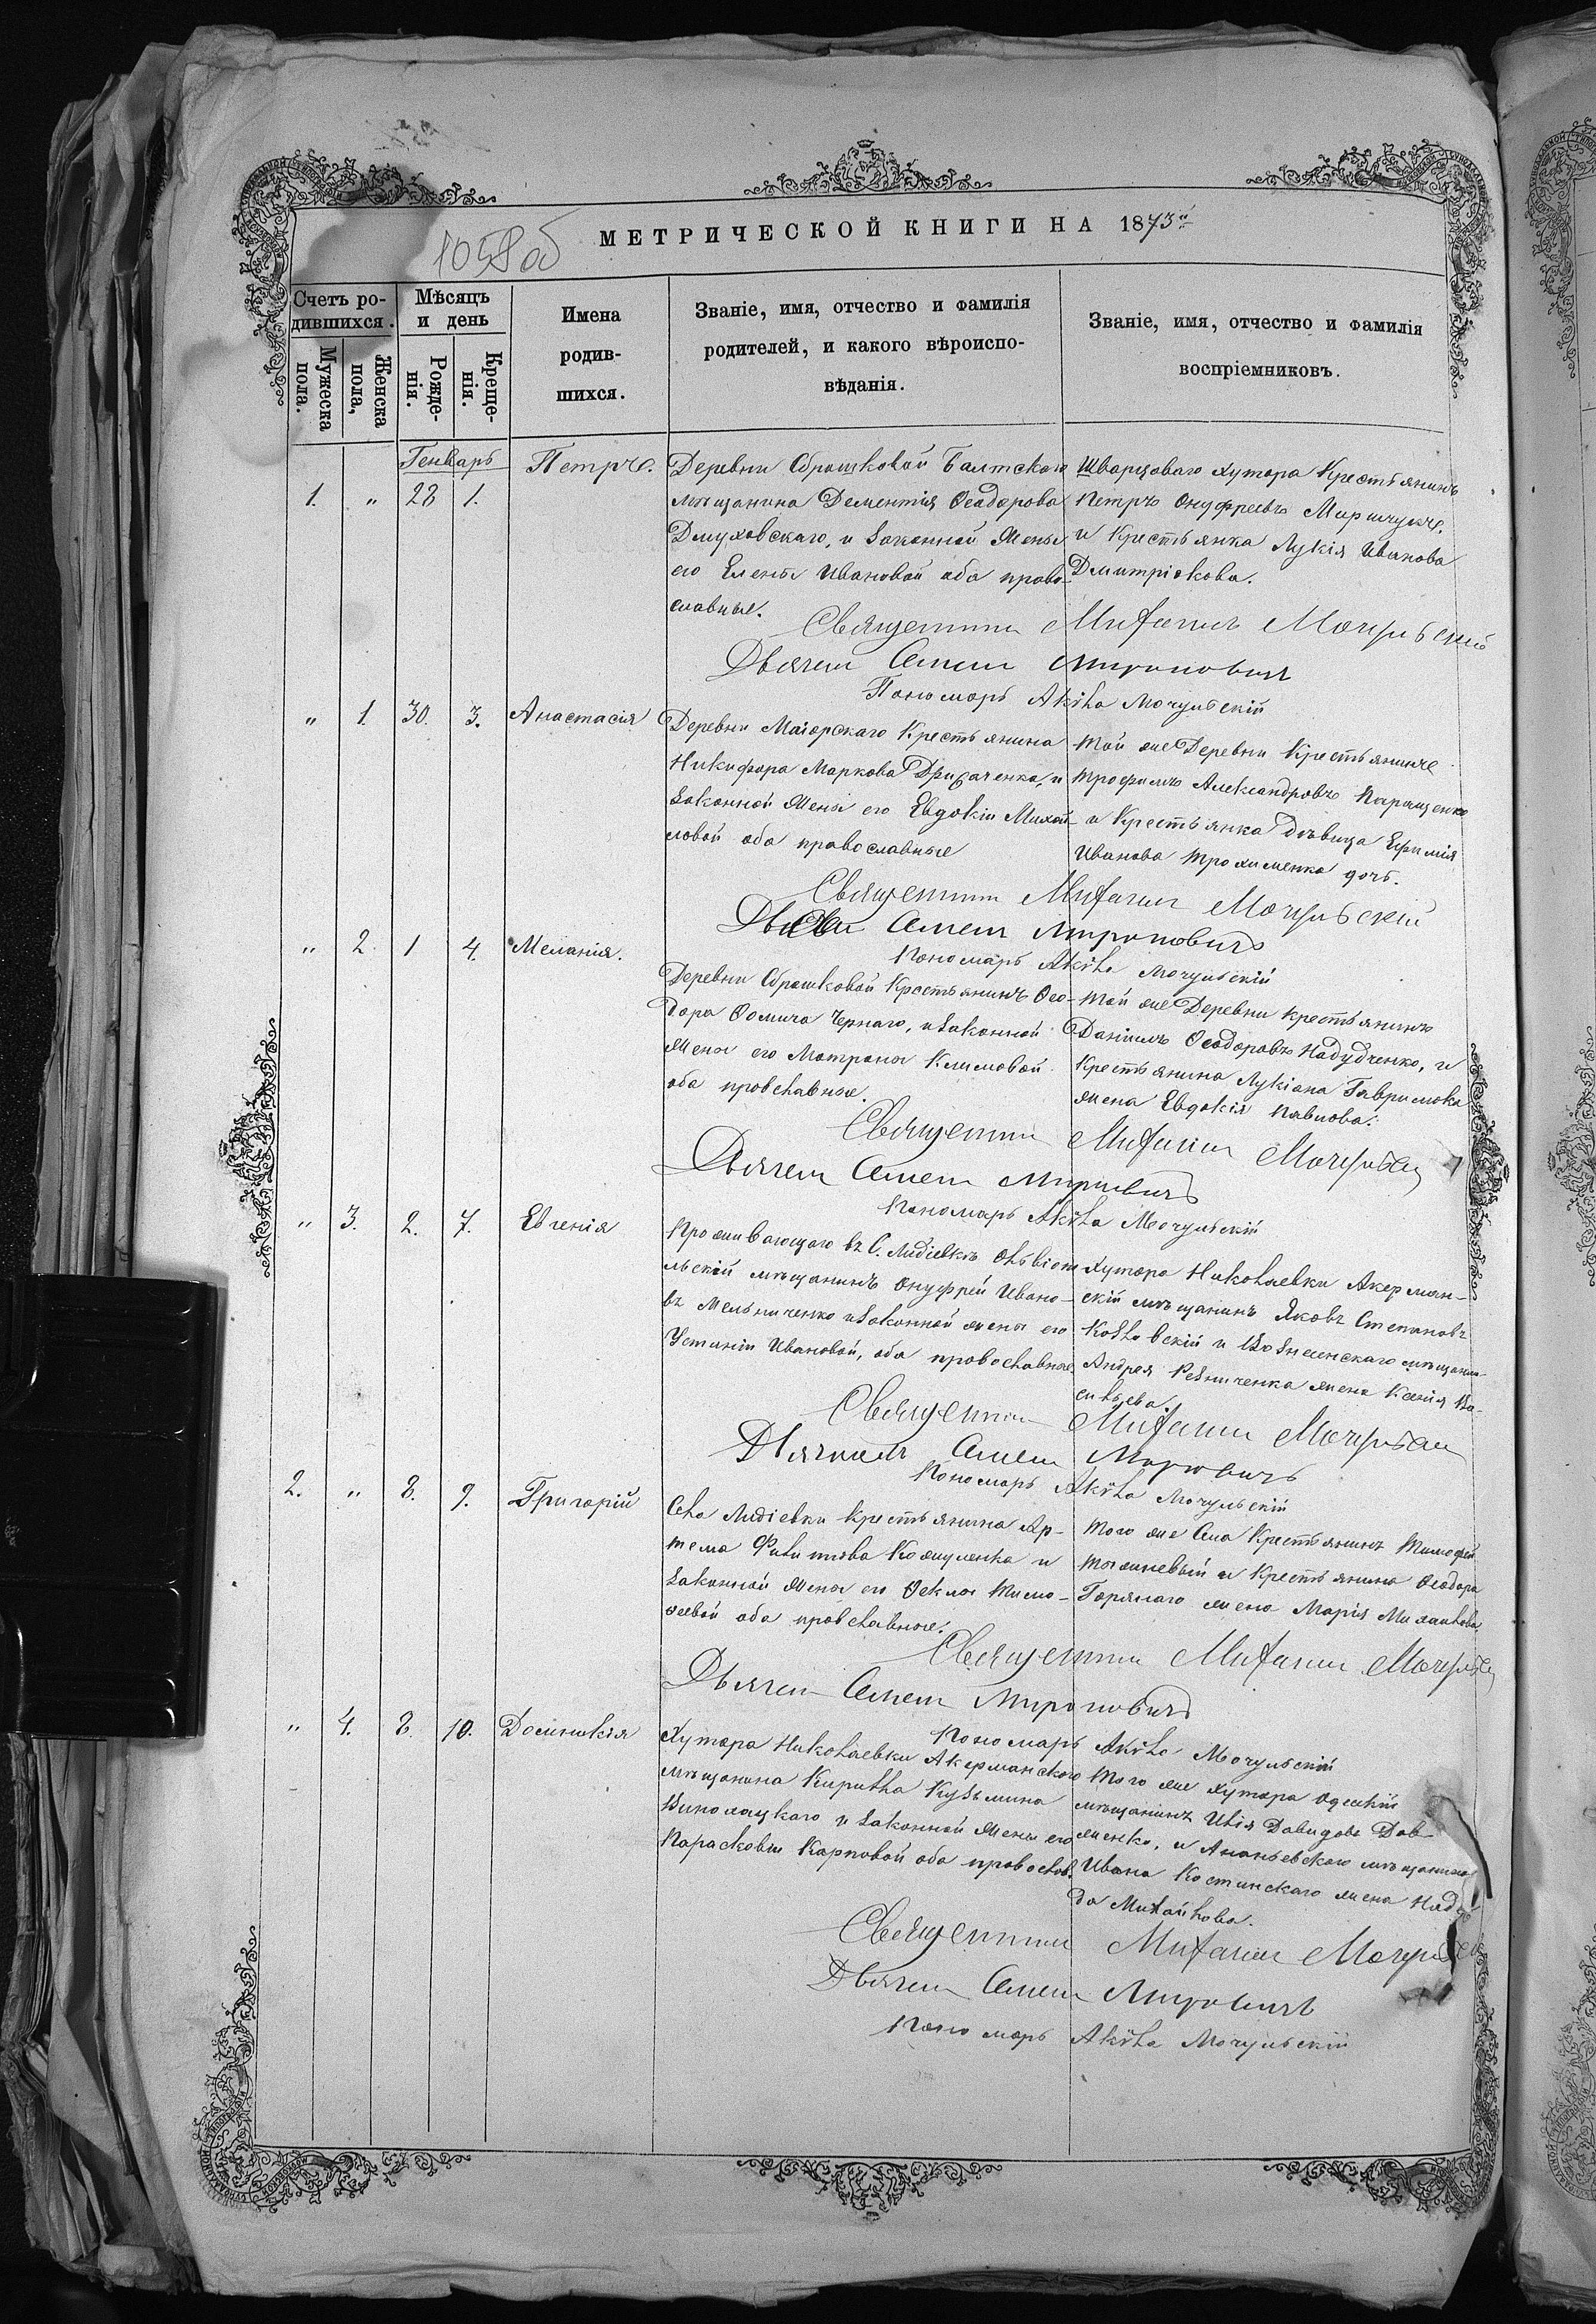 1058 об
МЕТРИЧЕСКОЙ КНИГИ НА 1873й
Счетъ ро-
дившихся.
Мужеска
пола.
Женска
пола,
Мѣсяцъ
и день
Рожде-
нія.
Креще-
нія.
Имена
родив-
шихся.
Званіе, имя, отчество и фамилія
родителей, и какого вѣроиспо-
вѣданія.
Званіе, имя, отчество и фамилія
воспріемниковъ.
Генварь
1. " 28 1. Петръ.
Деревни Сброшковой Балтского
мѣщанина Дементія Ѳеодорова
Дмуховскаго, и Законной Жены
его Елены Ивановой оба право-
славные.
Шварцоваго хутора Крестьянинъ
Петръ Онуфреевъ Маримукъ,
и Крестьянка Лукія Иванова
Дмитріокова.
Священникъ Мифаилъ Мочульскій
Дьячекъ Симеонъ Мироновичъ
Пономарь Акила Мочульскій
" 1. 30. 3. Анастасія
Деревни Маіорскаго Крестьянина
Никифора Маркова Дригаченка, и
Законной Жены его Евдокіи Михай-
ловой оба православные
той же Деревни Крестьянинъ
трофимъ Александровъ Паращенко
и Крестьянка дѣвица Ефимія
Иванова трохименка дочь.
Священникъ Мифаилъ Мочульскій
Дьячекъ Симеонъ Мироновичъ
Пономарь Акила Мочульскій
" 2. 1 4. Меланія.
Деревни Сброшковой Крестьянинъ Ѳео-
дора Ѳомича Чернаго, и Законной
Жены его Матроны Климовой
оба провславные.
той же Деревни крестьянинъ
Даніилъ Ѳеодоровъ Надудченко, и
Крестьянина Лукіана Гаврилюка
жена Евдокія Павлова.
Священникъ Мифаилъ Мочульскій
Дьячекъ Симеонъ Мироновичъ
Пономарь Акила Мочульскій
" 3. 2. 7. Евгенія
Проживающаго въ С. Лидіевкѣ Ольвіопо-
льскій мѣщанинъ Онуфрій Ивано-
въ Мельниченко и Законной жены его
Устиніи Ивановой, оба провославные
Хутора Николаевки Акерман-
скій мѣщанинъ Яковъ Степановъ
Козловскій и Вознесенскаго мѣщанина
Андрея Резниченка жена Ксенія Ва-
сильева.
Священникъ Мифаилъ Мочульскій
Дьячекъ Симеонъ Мироновичъ
Пономарь Акила Мочульскій
2. " 8. 9. Григорій
Села Лидіевки Крестьянина Ар-
тема Филипова Кожуленка и
Законной Жены его Ѳеклы Тимо-
ѳеевой оба провславные.
того же Села Крестьянинъ Тимоѳей
и Крестьянина Ѳеодора
Горянаго жена Марія Михайлова.
Священникъ Мифаилъ Мочульскій
Дьячекъ Симеонъ Мироновичъ
Пономарь Акила Мочульскій
" 4. 8. 10. Домникія
Хутора Николаевки Акерманского
мѣщанина Кирилла Кузьмина
и Законной Жены его
Парасковіи Карповой оба провослов.
того же хутора Одесскій
мѣщанинъ Илія Давидовъ Дов-
женко, и Ананьевскаго мѣщанина
Ивана Костинскаго жена Надеж-
да Михайлова.
Священникъ Мифаилъ Мочульскій
Дьячекъ Симеонъ Мироновичъ
Пономарь Акила Мочульскій